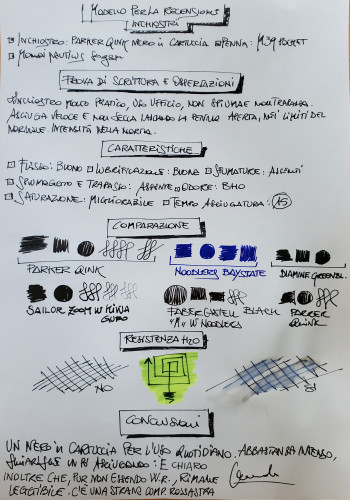 MODELLO PER LA RECENSIONE
INCHIOSTRI
INCHIOSTRO: PARKER QINK NERO IN CARTUCCIA PENNA: M39 POCKET
NAUTILUS
PROVA DI SCRITTURA E OSSERVAZIONI
INCHIOSTRO MOLTO PRATICO, DA UFFICIO, NON SPIUMA E NON TRAPASSA.
ASCIUGA VELOCE E NON SECCA LASCIANDO LA PENNA APERTA, NEI LIMITI DEL
NORMALE. INTENSITÀ NELLA NORMA.
CARATTERISTICHE
FLUSSO: BUONO LUBRIFICAZIONE: BUONA SFUMATURE: ASSENTI
SPIUMAGGIO E TRAPASSO: ASSENTE ODORE: BHO
SATURAZIONE: MIGLIORABILE TEMPO ASCIUGATURA: 15
COMPARAZIONE
PARKER QINK NOODLERS BAYSTATE DIAMINE
SAILOR FABER CASTELL BLACK PARKER
NOODLERS QUINK
RESISTENZA H2O
NO SI
CONCLUSIONI
UN NERO IN CARTUCCIA PER L'USO QUOTIDIANO. ABBASTANZA INTENSO,
UN PÒ ASCIUGANDO. È CHIARO
INOLTRE CHE, PUR NON ESSENDO W.R., RIMANE
LEGGIBILE. C'È UNA STRANA COMP. ROSSASTRA